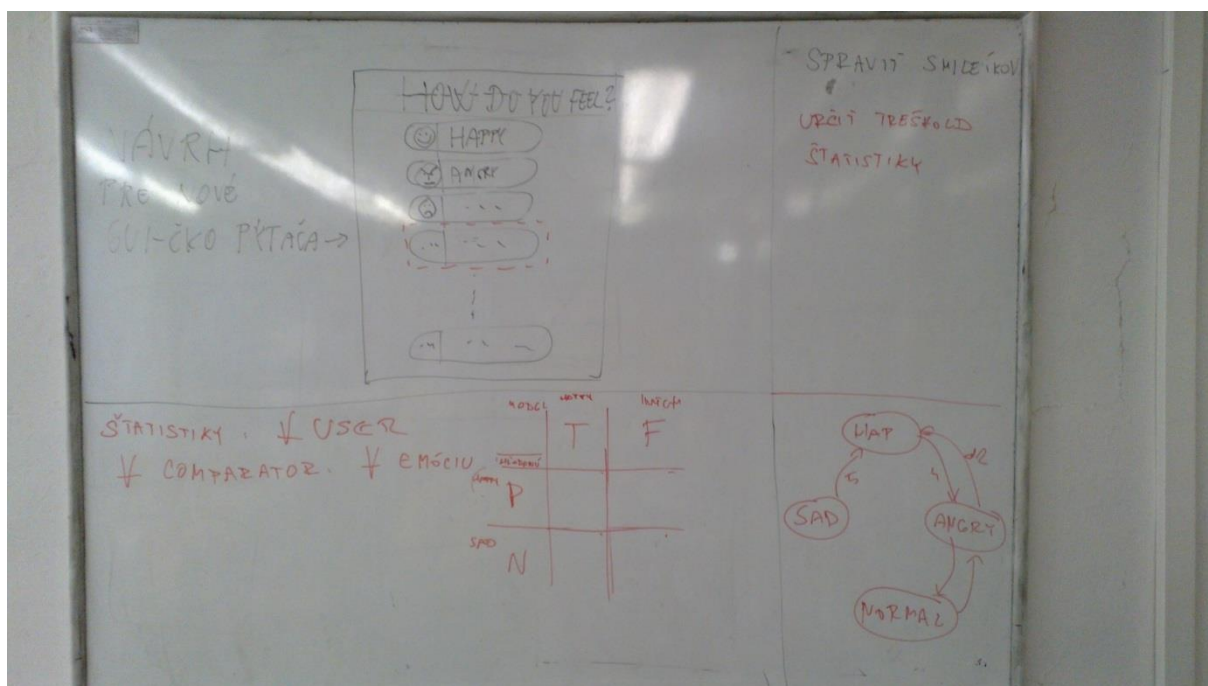 NÁVRH
PRE NOVÉ
GUI-ČKO PÝTAČA →
HOW DO YOU FEEL?
HAPPY
ANGRY
...
...
...
- SPRAVIŤ SMILEÍKOV
URČIŤ TREŠHOLD
ŠTATISTIKY
ŠTATISTIKY. ∀ USER
∀ COMPARATOR. ∀ EMÓCIU
MODEL HAPPY
T F
P
SAD
N
HAP
SAD
ANGRY
NORMAL